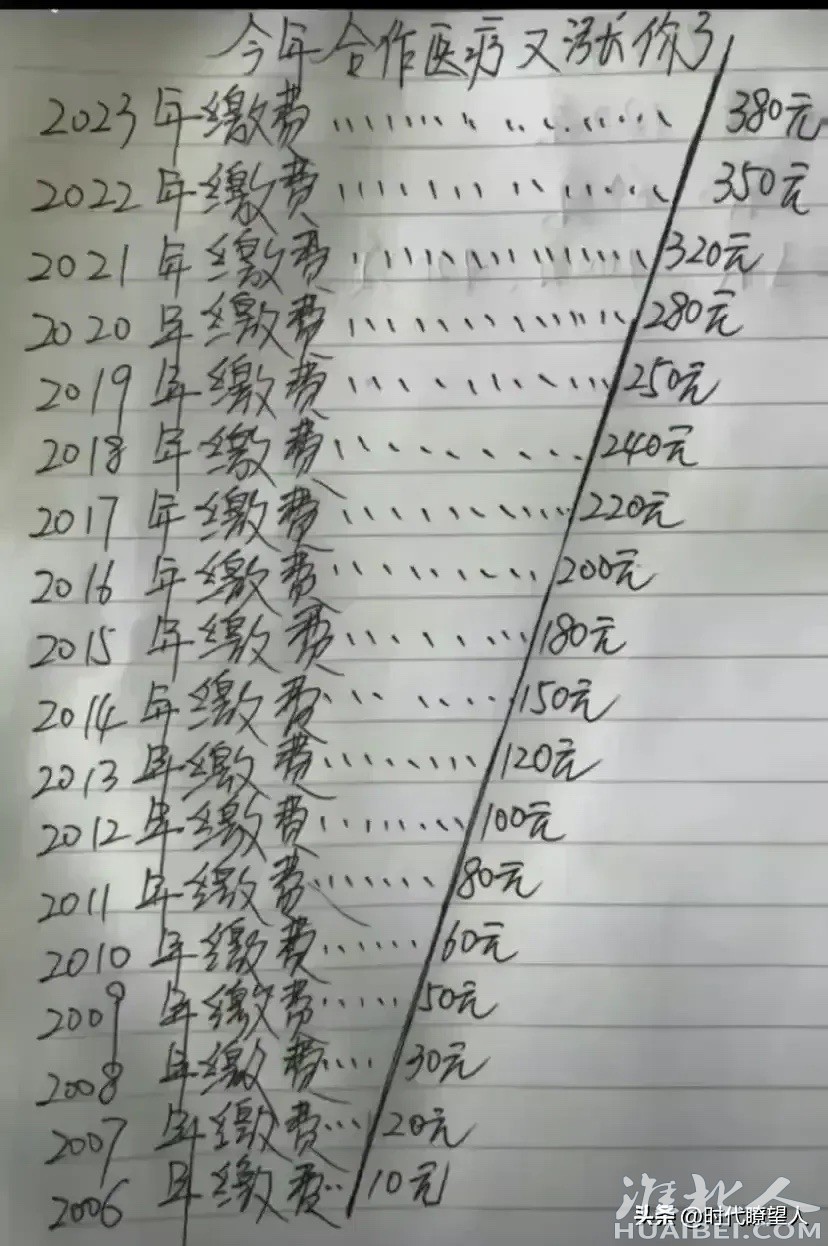 今年合作医疗又涨价了
2023年缴费..................380元
2022年缴费..................350元
2021年缴费..................320元
2020年缴费..................280元
2019年缴费..................250元
2018年缴费..........240元
2017年缴费..............220元
2016年缴费............200元
2015年缴费..........180元
2014年缴费........150元
2013年缴费.........120元
2012年缴费.........100元
2011年缴费........80元
2010年缴费......60元
2009年缴费.....50元
2008年缴费....30元
2007年缴费...20元
2006年缴费..10元
淮北人
头条 @时代瞭望人
HUAIBEI.COM